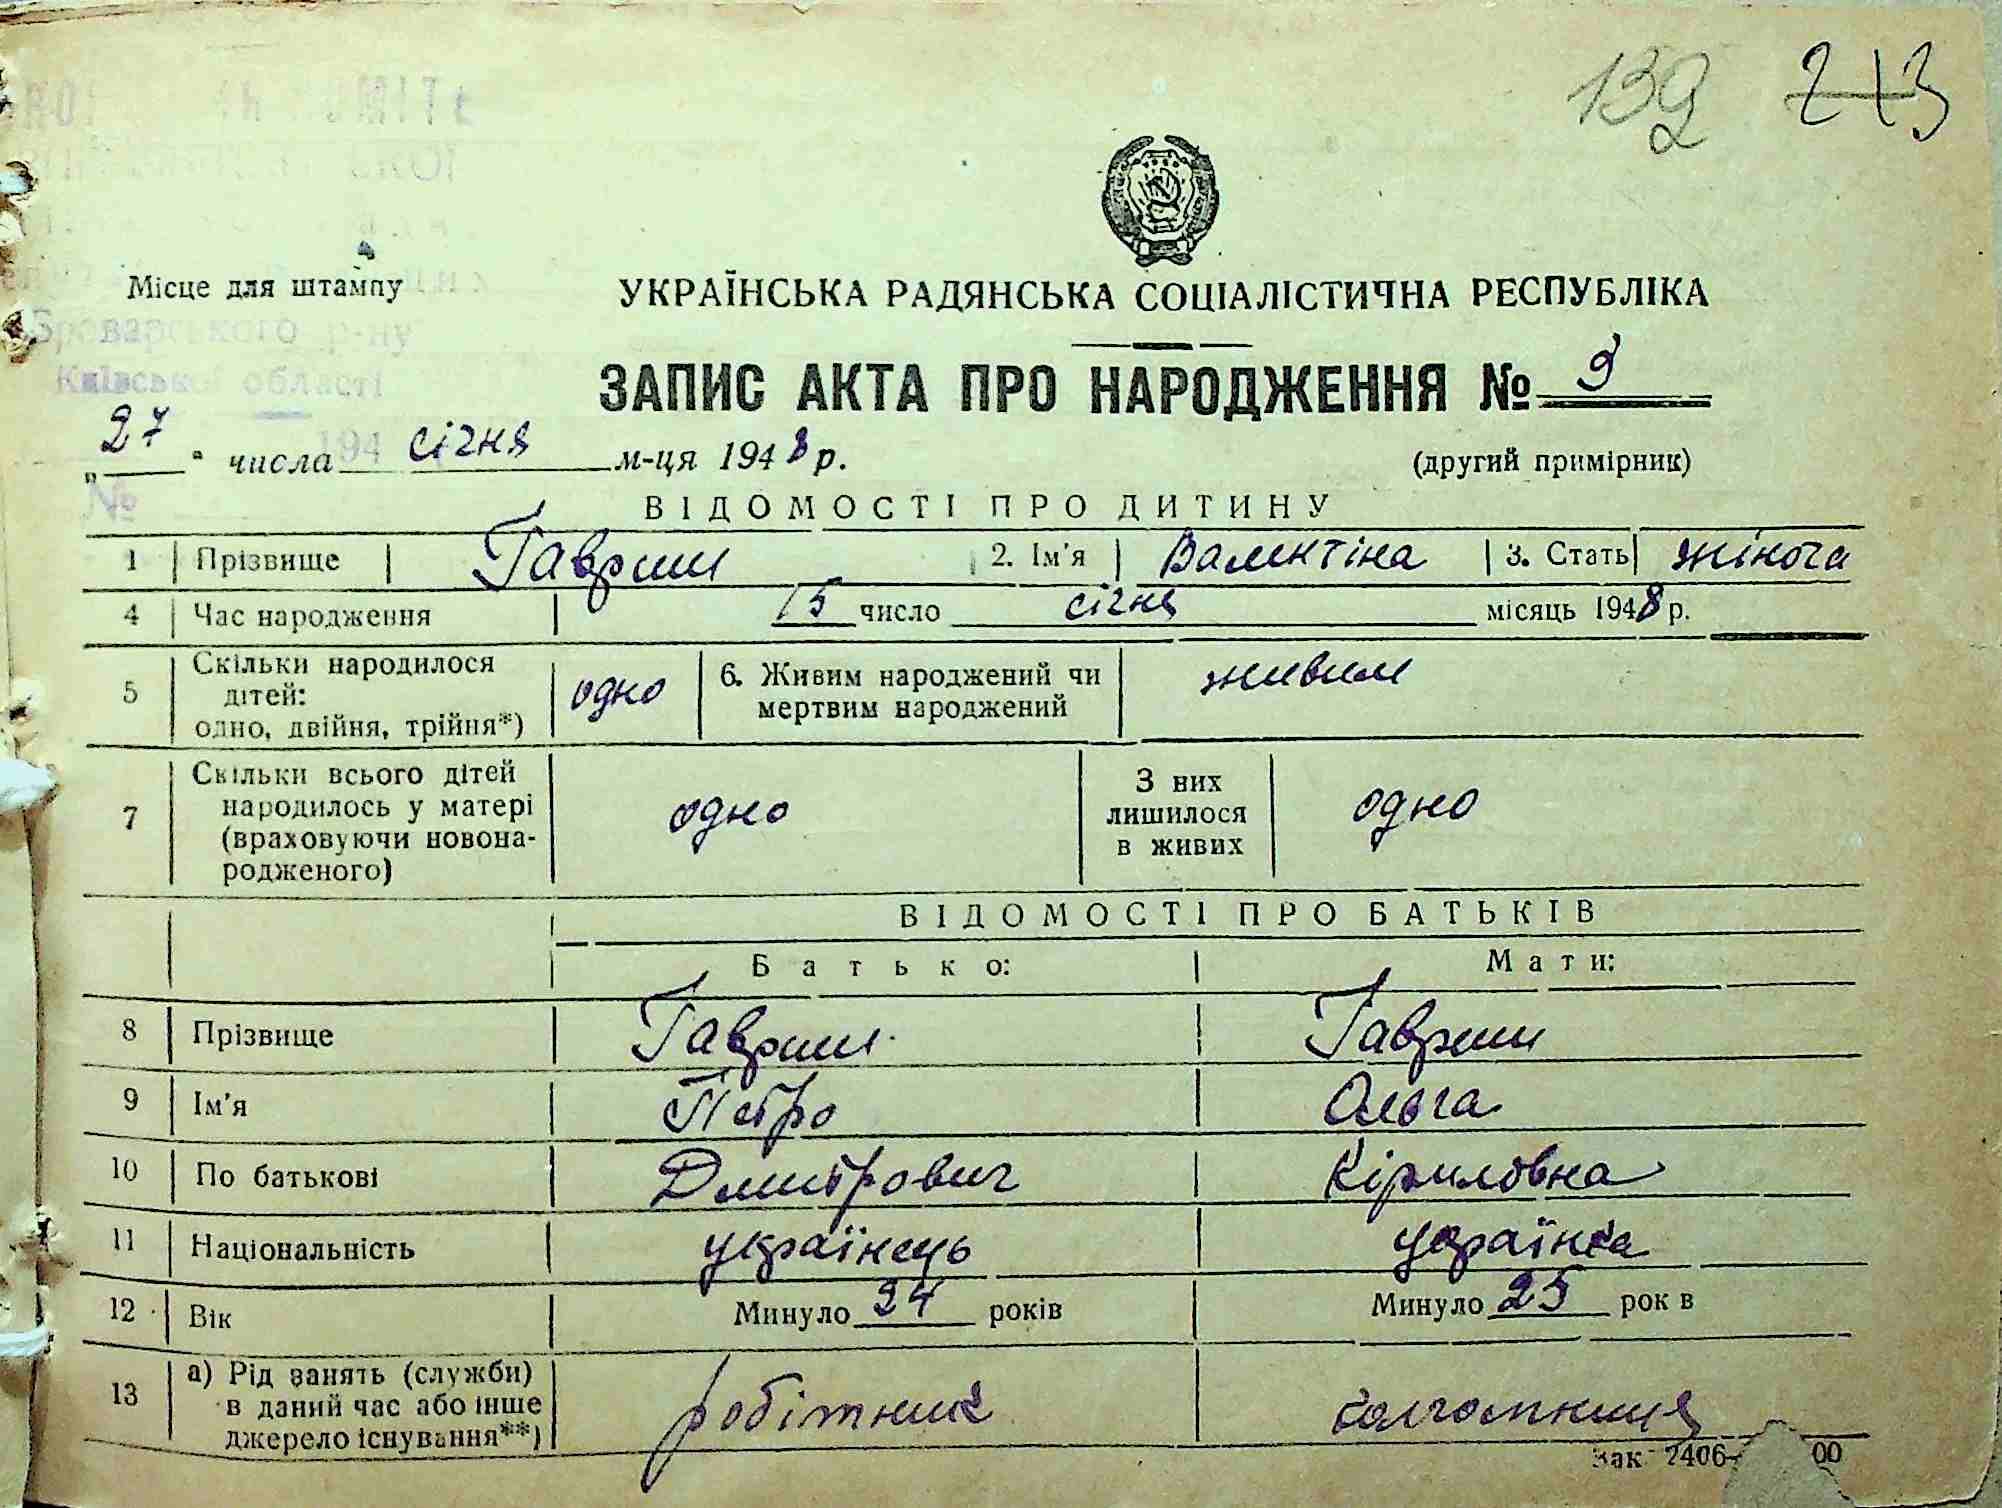 139 213
Місце для штампу
УКРАЇНСЬКА РАДЯНСЬКА СОЦІАЛІСТИЧНА РЕСПУБЛІКА
Броварського р-ну
Київської області
ЗАПИС АКТА ПРО НАРОДЖЕННЯ № 9
„27“ числа січня м-ця 1948 р. (другий примірник)
194
№
ВІДОМОСТІ ПРО ДИТИНУ
1 Прізвище Гавриш 2. Ім'я Валентіна 3. Стать жіноча
4 Час народження 15 число січня місяць 1948 р.
5 Скільки народилося дітей: одно, двійня, трійня*) одно 6. Живим народжений чи мертвим народжений живим
7 Скільки всього дітей народилось у матері (враховуючи новонародженого) одно З них лишилося в живих одно
ВІДОМОСТІ ПРО БАТЬКІВ
Батько: Мати:
8 Прізвище Гавриш Гавриш
9 Ім'я Петро Ольга
10 По батькові Дмитрович Кіриловна
11 Національність українець українка
12 Вік Минуло 24 років Минуло 25 рок в
13 а) Рід занять (служби) в даний час або інше джерело існування**) робітник колгоспниця
Зак. 2406- 00